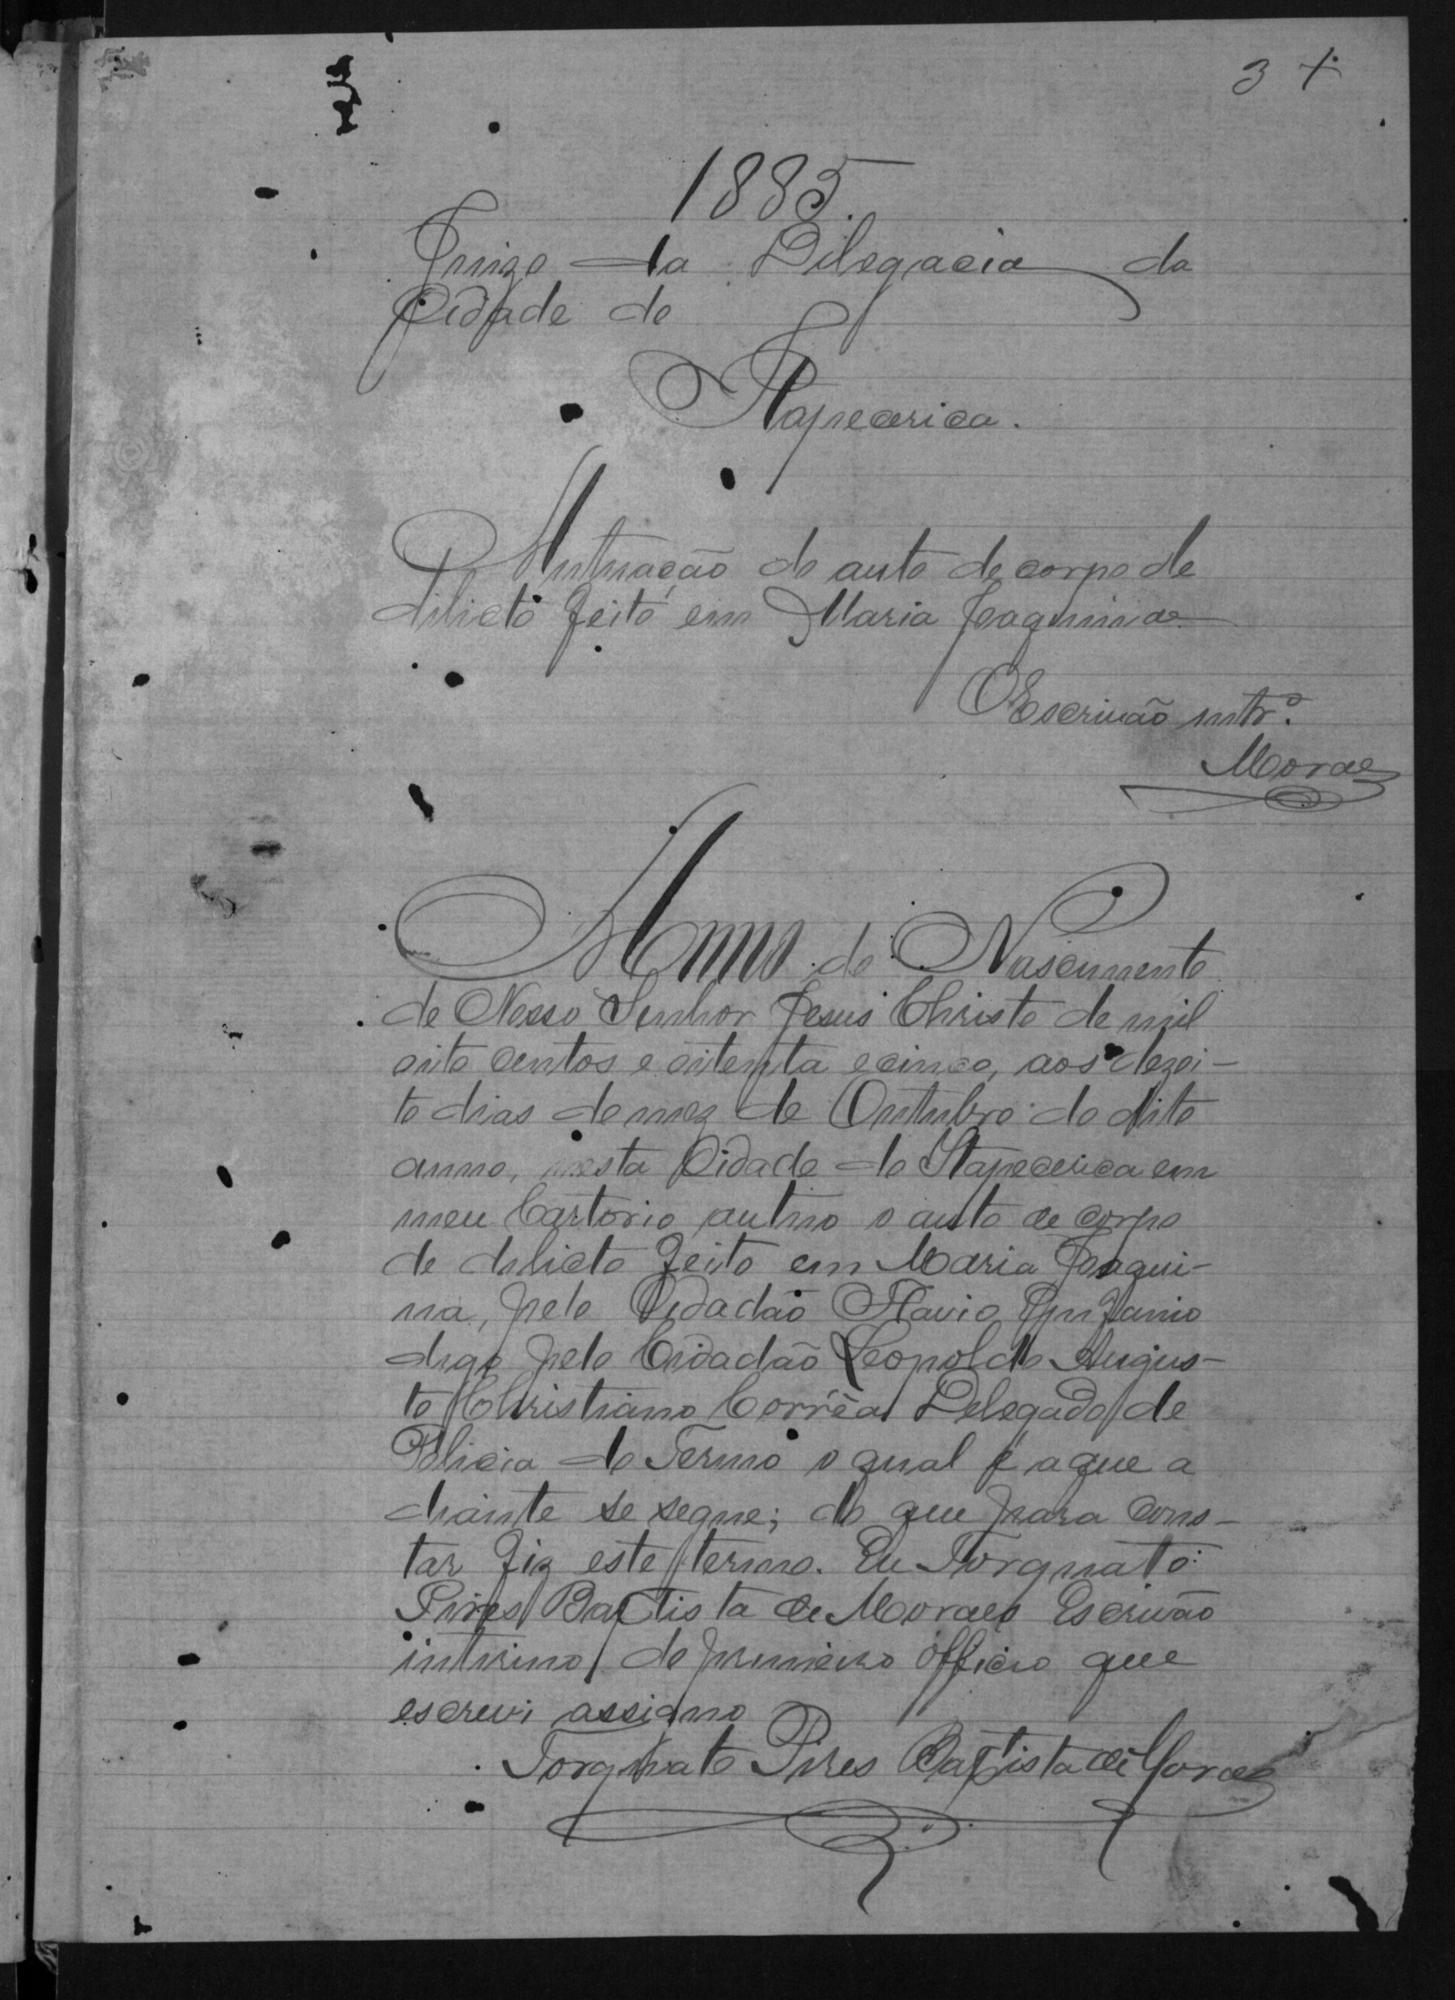 3 X
1885.
Juizo da Delegacia da
Cidade de
Itapecerica.
Autuação do auto de corpo de
delicto feito em Maria Joaquina
O Escrivão intrº.
Moraes
Anno do Nascimento
de Nosso Senhor Jesus Christo de mil
oito centos e oitenta e cinco, aos dezoi-
to dias do mez de Outubro do dito
anno, nesta Cidade de Itapecerica em
meu Cartorio autuo o auto de corpo
de delicto feito em Maria Joaqui-
na, pelo Cidadão Flavio
digo pelo Cidadão Leopoldo Augus-
to Christiano Corrêa Delegado de
Policia do Termo o qual é a que a
diante se segue; do que para cons-
tar fiz este termo. Eu Torquato
Pires Baptista de Moraes Escrivão
interino do primeiro officio que
escrevi assigno
Torquato Pires Baptista de Moraes